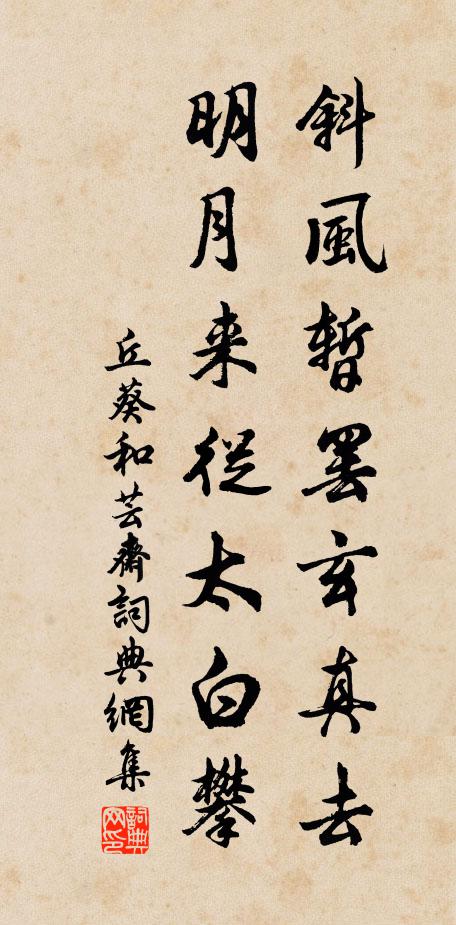 斜風暫罷玄真去
明月来從太白攀
丘葵和芸齋詞典網集
詞典網印